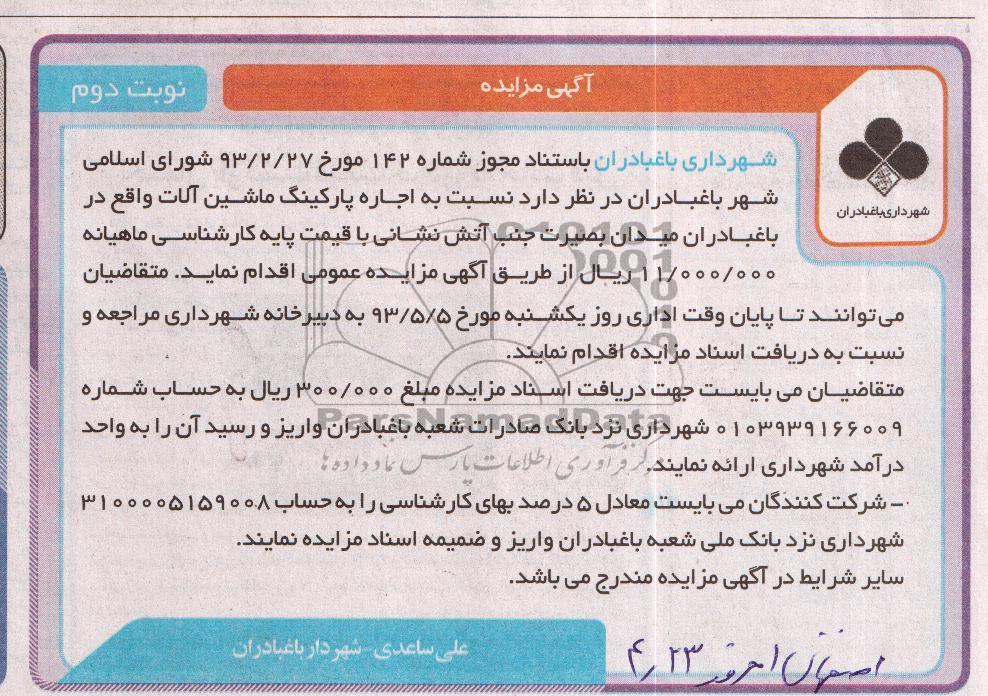 آگهی مزایده
نوبت دوم
شهرداری باغبادران
شهرداری باغبادران باستناد مجوز شماره ۱۴۲ مورخ ۹۳/۲/۲۷ شورای اسلامی
شهر باغبادران در نظر دارد نسبت به اجاره پارکینگ ماشین آلات واقع در
باغبادران میدان بصیرت جنب آتش نشانی با قیمت پایه کارشناسی ماهیانه
۱۱/۰۰۰/۰۰۰ ریال از طریق آگهی مزایده عمومی اقدام نماید. متقاضیان
می‌توانند تا پایان وقت اداری روز یکشنبه مورخ ۹۳/۵/۵ به دبیرخانه شهرداری مراجعه و
نسبت به دریافت اسناد مزایده اقدام نمایند.
متقاضیان می بایست جهت دریافت اسناد مزایده مبلغ ۳۰۰/۰۰۰ ریال به حساب شماره
ParsNamadData
۰۱۰۳۹۳۹۱۶۶۰۰۹ شهرداری نزد بانک صادرات شعبه باغبادران واریز و رسید آن را به واحد
مرکز فرآوری اطلاعات پارس نماد داده ها
درآمد شهرداری ارائه نمایند.
- شرکت کنندگان می بایست معادل ۵ درصد بهای کارشناسی را به حساب ۳۱۰۰۰۰۵۱۵۹۰۰۸
شهرداری نزد بانک ملی شعبه باغبادران واریز و ضمیمه اسناد مزایده نمایند.
سایر شرایط در آگهی مزایده مندرج می باشد.
علی ساعدی - شهردار باغبادران
اصفهان امروز ۴/۲۳